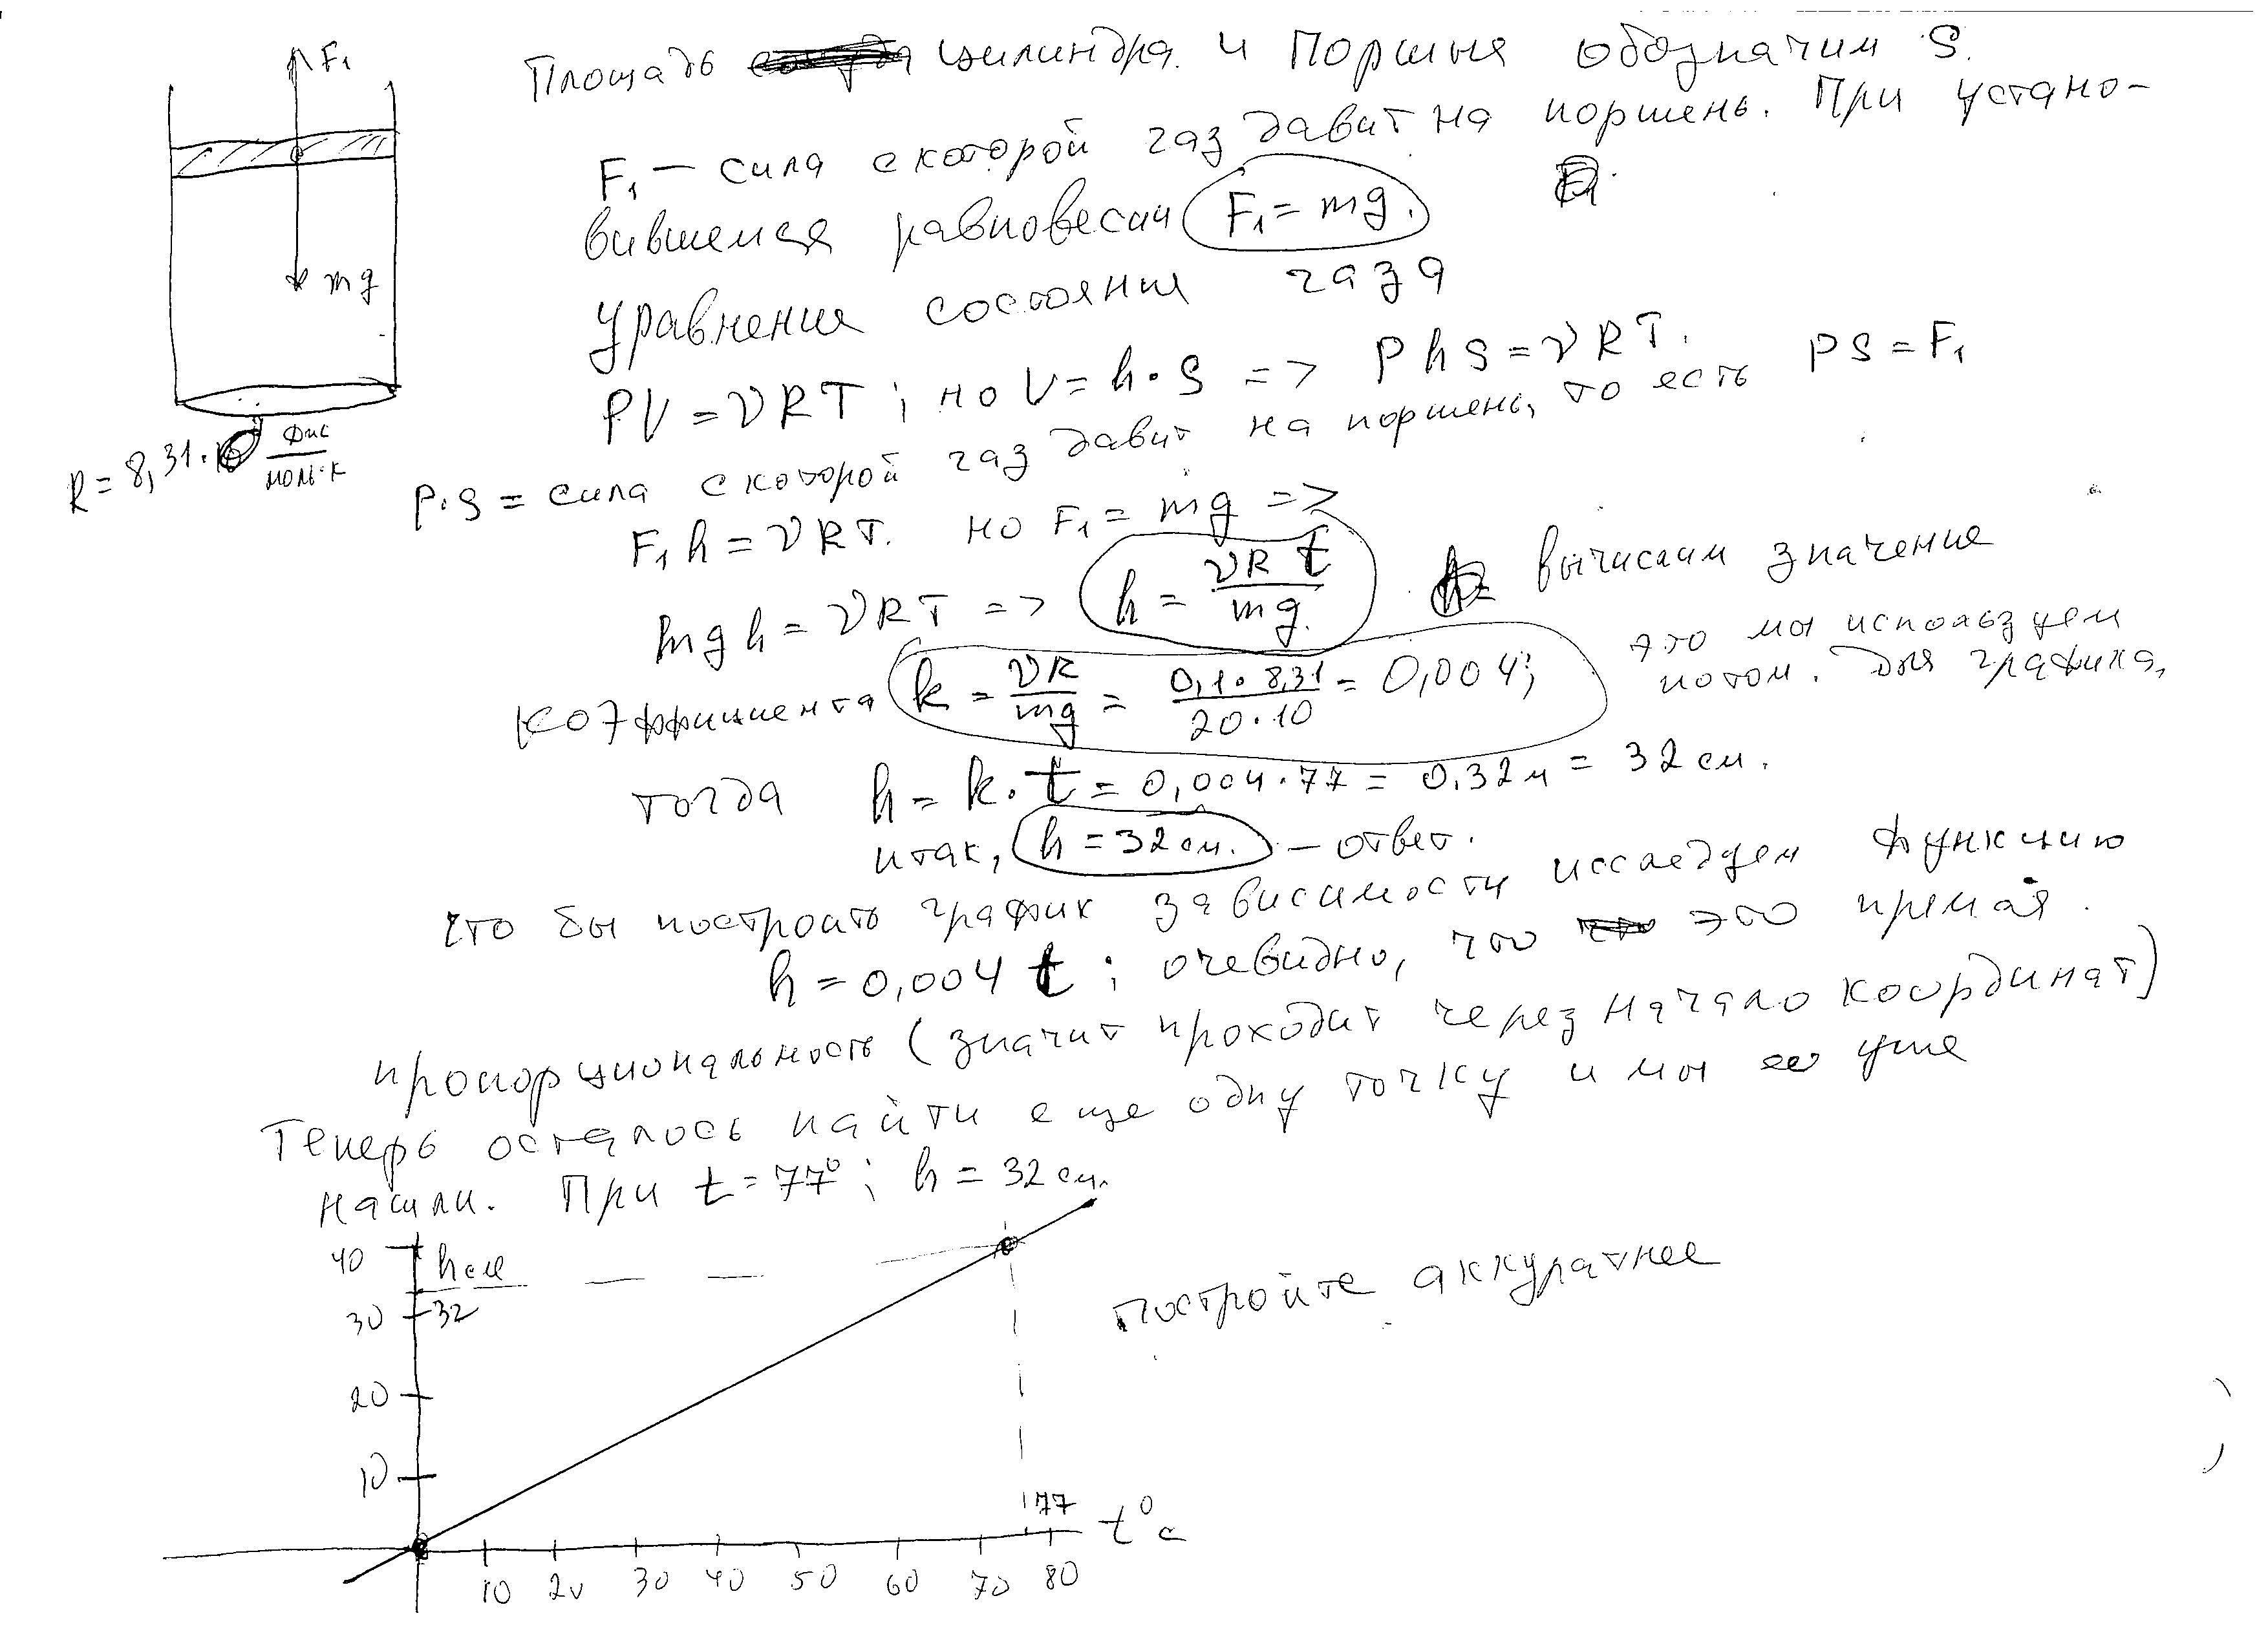 F₁
mg
R = 8,31 · Дж / моль·К
Площадь цилиндра и поршня обозначим S.
F₁ – сила с которой газ давит на поршень. При устано-
вившемся равновесии F₁ = mg.
уравнение состояния газа
PV = νRT ; но V = h · S => PhS = νRT.
P·S = сила с которой газ давит на поршень, то есть PS = F₁
F₁h = νRT. но F₁ = mg =>
mgh = νRT => h = νRt / mg. вычислим значение
коэффициента k = νR / mg = 0,1·8,31 / 20·10 = 0,004; это мы используем
потом. для графика,
тогда h = k·t = 0,004·77 = 0,32м = 32 см.
итак, h = 32 см. – ответ.
что бы построить график зависимости исследуем функцию
h = 0,004 t ; очевидно, что это прямая.
пропорциональность (значит проходит через начало координат)
Теперь осталось найти еще одну точку и мы ее уже
нашли. При t = 77° ; h = 32 см.
40 h см
30 32
20
10
77
t° с
10 20 30 40 50 60 70 80
постройте аккуратнее